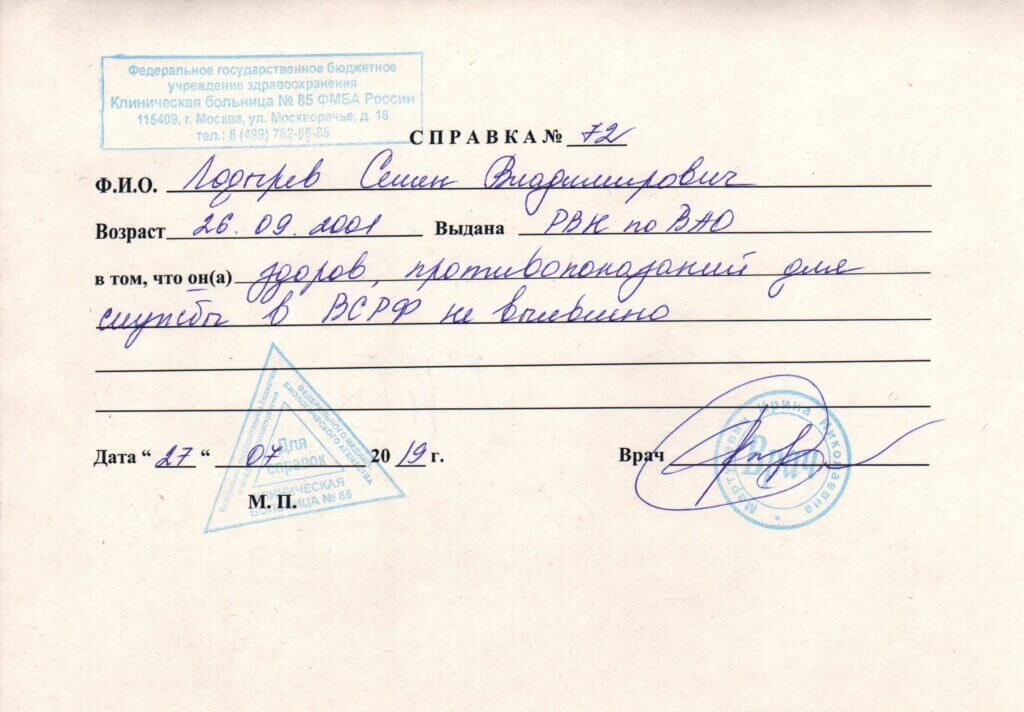 Федеральное государственное бюджетное
учреждение здравоохранения
Клиническая больница № 85 ФМБА России
115409, г. Москва, ул. Москворечье, д. 16
тел.: 8 (499) 782-85-85
СПРАВКА № 72
Ф.И.О. Лодырев Семен Владимирович
Возраст 26.09.2001 Выдана РВК по ВАО
в том, что он(а) здоров, противопоказаний для
службы в ВСРФ не выявлено
ФЕДЕРАЛЬНОГО
БИОЛОГИЧЕСКОГО АГЕНТСТВА
Для
справок
КЛИНИЧЕСКАЯ
БОЛЬНИЦА № 85
Дата “ 27 “ 07 20 19 г.
Врач
Ирина Николаевна
Врач
М. П.